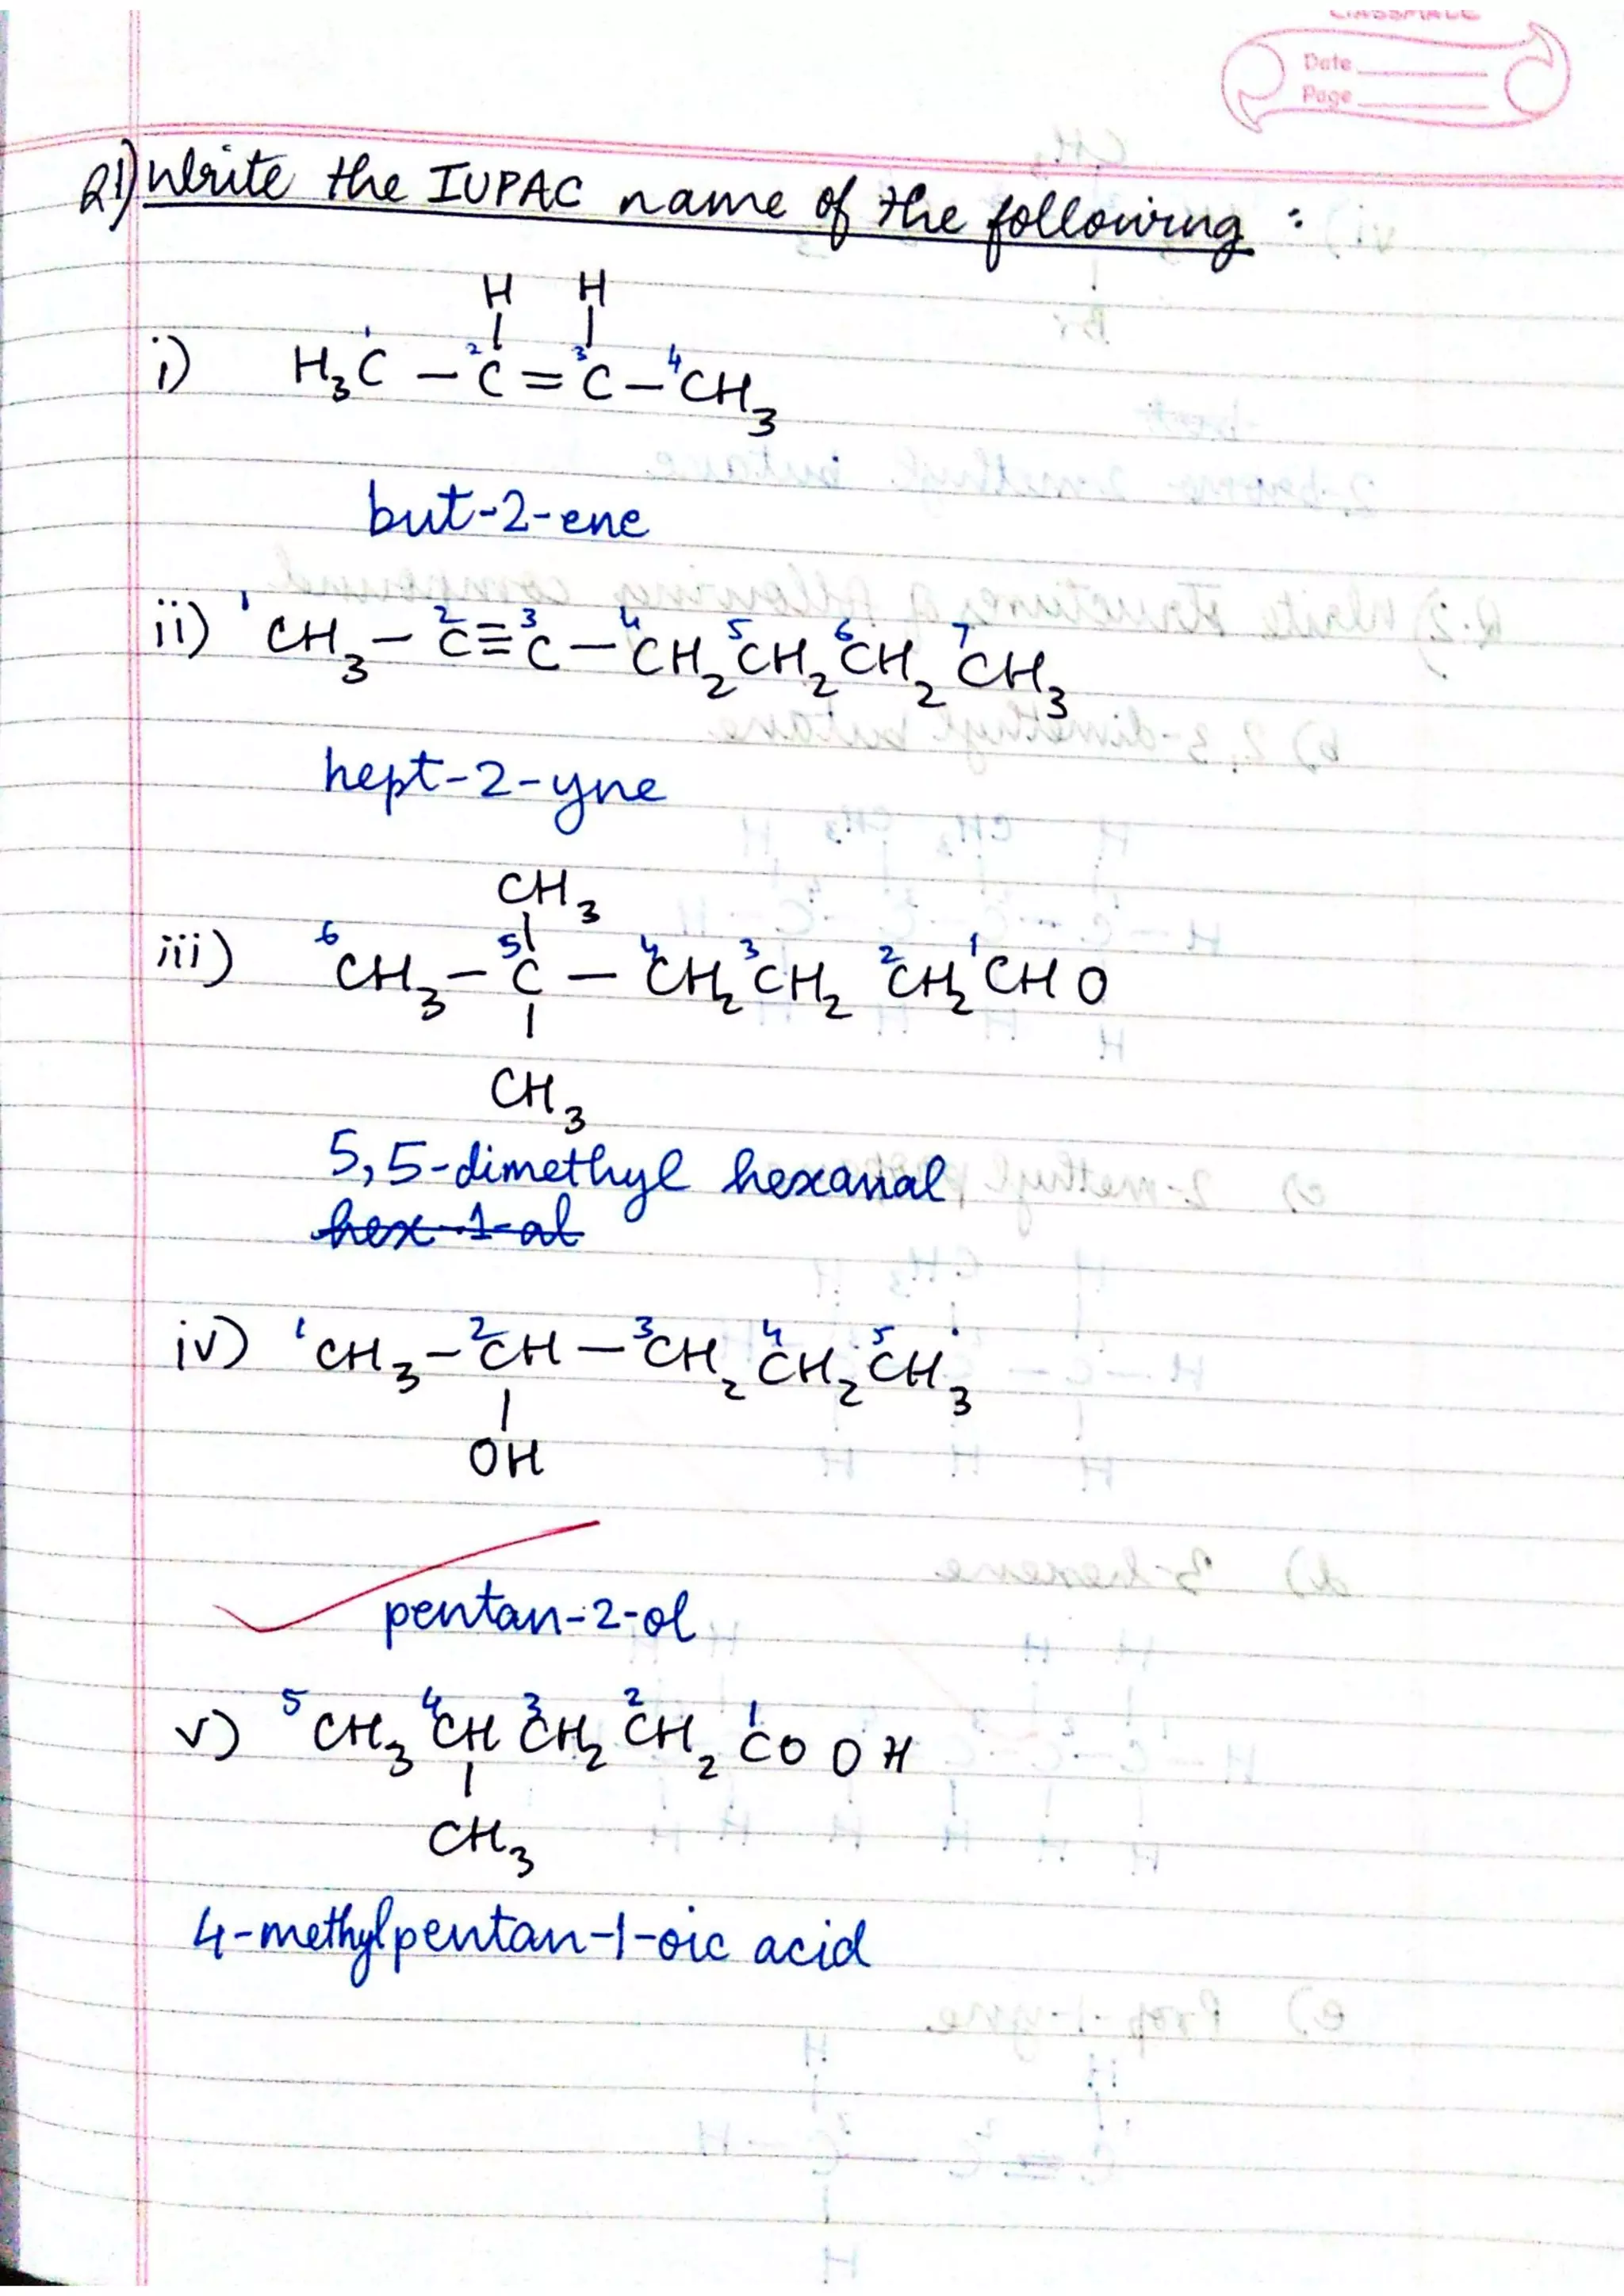 classmate
Date
Page
Q1) Write the IUPAC name of the following :
H H
i) H₃C¹ – ²C = ³C – ⁴CH₃
but-2-ene
ii) ¹CH₃ – ²C ≡ ³C – ⁴CH₂ ⁵CH₂ ⁶CH₂ ⁷CH₃
hept-2-yne
CH₃
iii) ⁶CH₃ – ⁵C – ⁴CH₂ ³CH₂ ²CH₂ ¹CHO
CH₃
5,5-dimethyl hexanal
hex-1-al
iv) ¹CH₃ – ²CH – ³CH₂ ⁴CH₂ ⁵CH₃
OH
pentan-2-ol
v) ⁵CH₃ ⁴CH ³CH₂ ²CH₂ ¹COOH
CH₃
4-methylpentan-1-oic acid